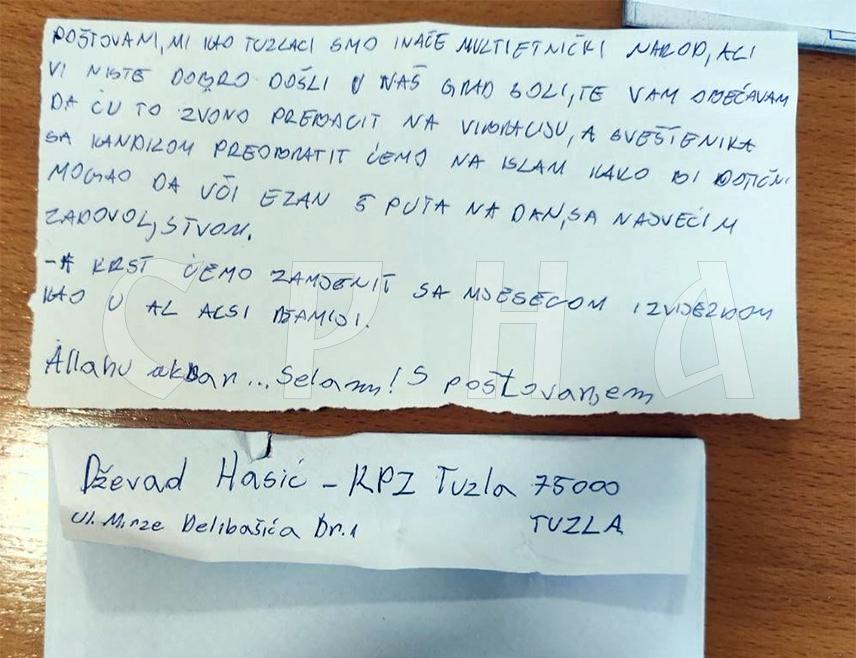 POŠTOVANI, MI KAO TUZLACI SMO INAČE MULTIETNIČKI NAROD, ALI
VI NISTE DOBRO DOŠLI U NAŠ GRAD SOLI, TE VAM OBEĆAVAM
DA ĆU TO ZVONO PREBACIT NA VIBRACIJU, A SVEŠTENIKA
SA KANDILOM PREOBRATIT ĆEMO NA ISLAM KAKO BI DOTIČNI
MOGAO DA UČI EZAN 5 PUTA NA DAN, SA NAJVEĆIM
ZADOVOLJSTVOM.
-A KRST ĆEMO ZAMJENIT SA MJESECOM I ZVIJEZDOM
KAO U AL AKSI DŽAMIJI.
Allahu akbar... Selam! S poštovanjem
СРНА
Dževad Hasić - KPZ Tuzla 75000
Ul. Mirze Delibašića Br.1 TUZLA